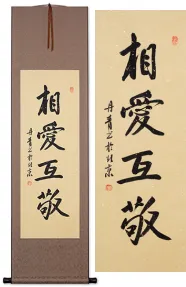 相愛互敬
丹青書於北京
相愛互敬
丹青書於北京